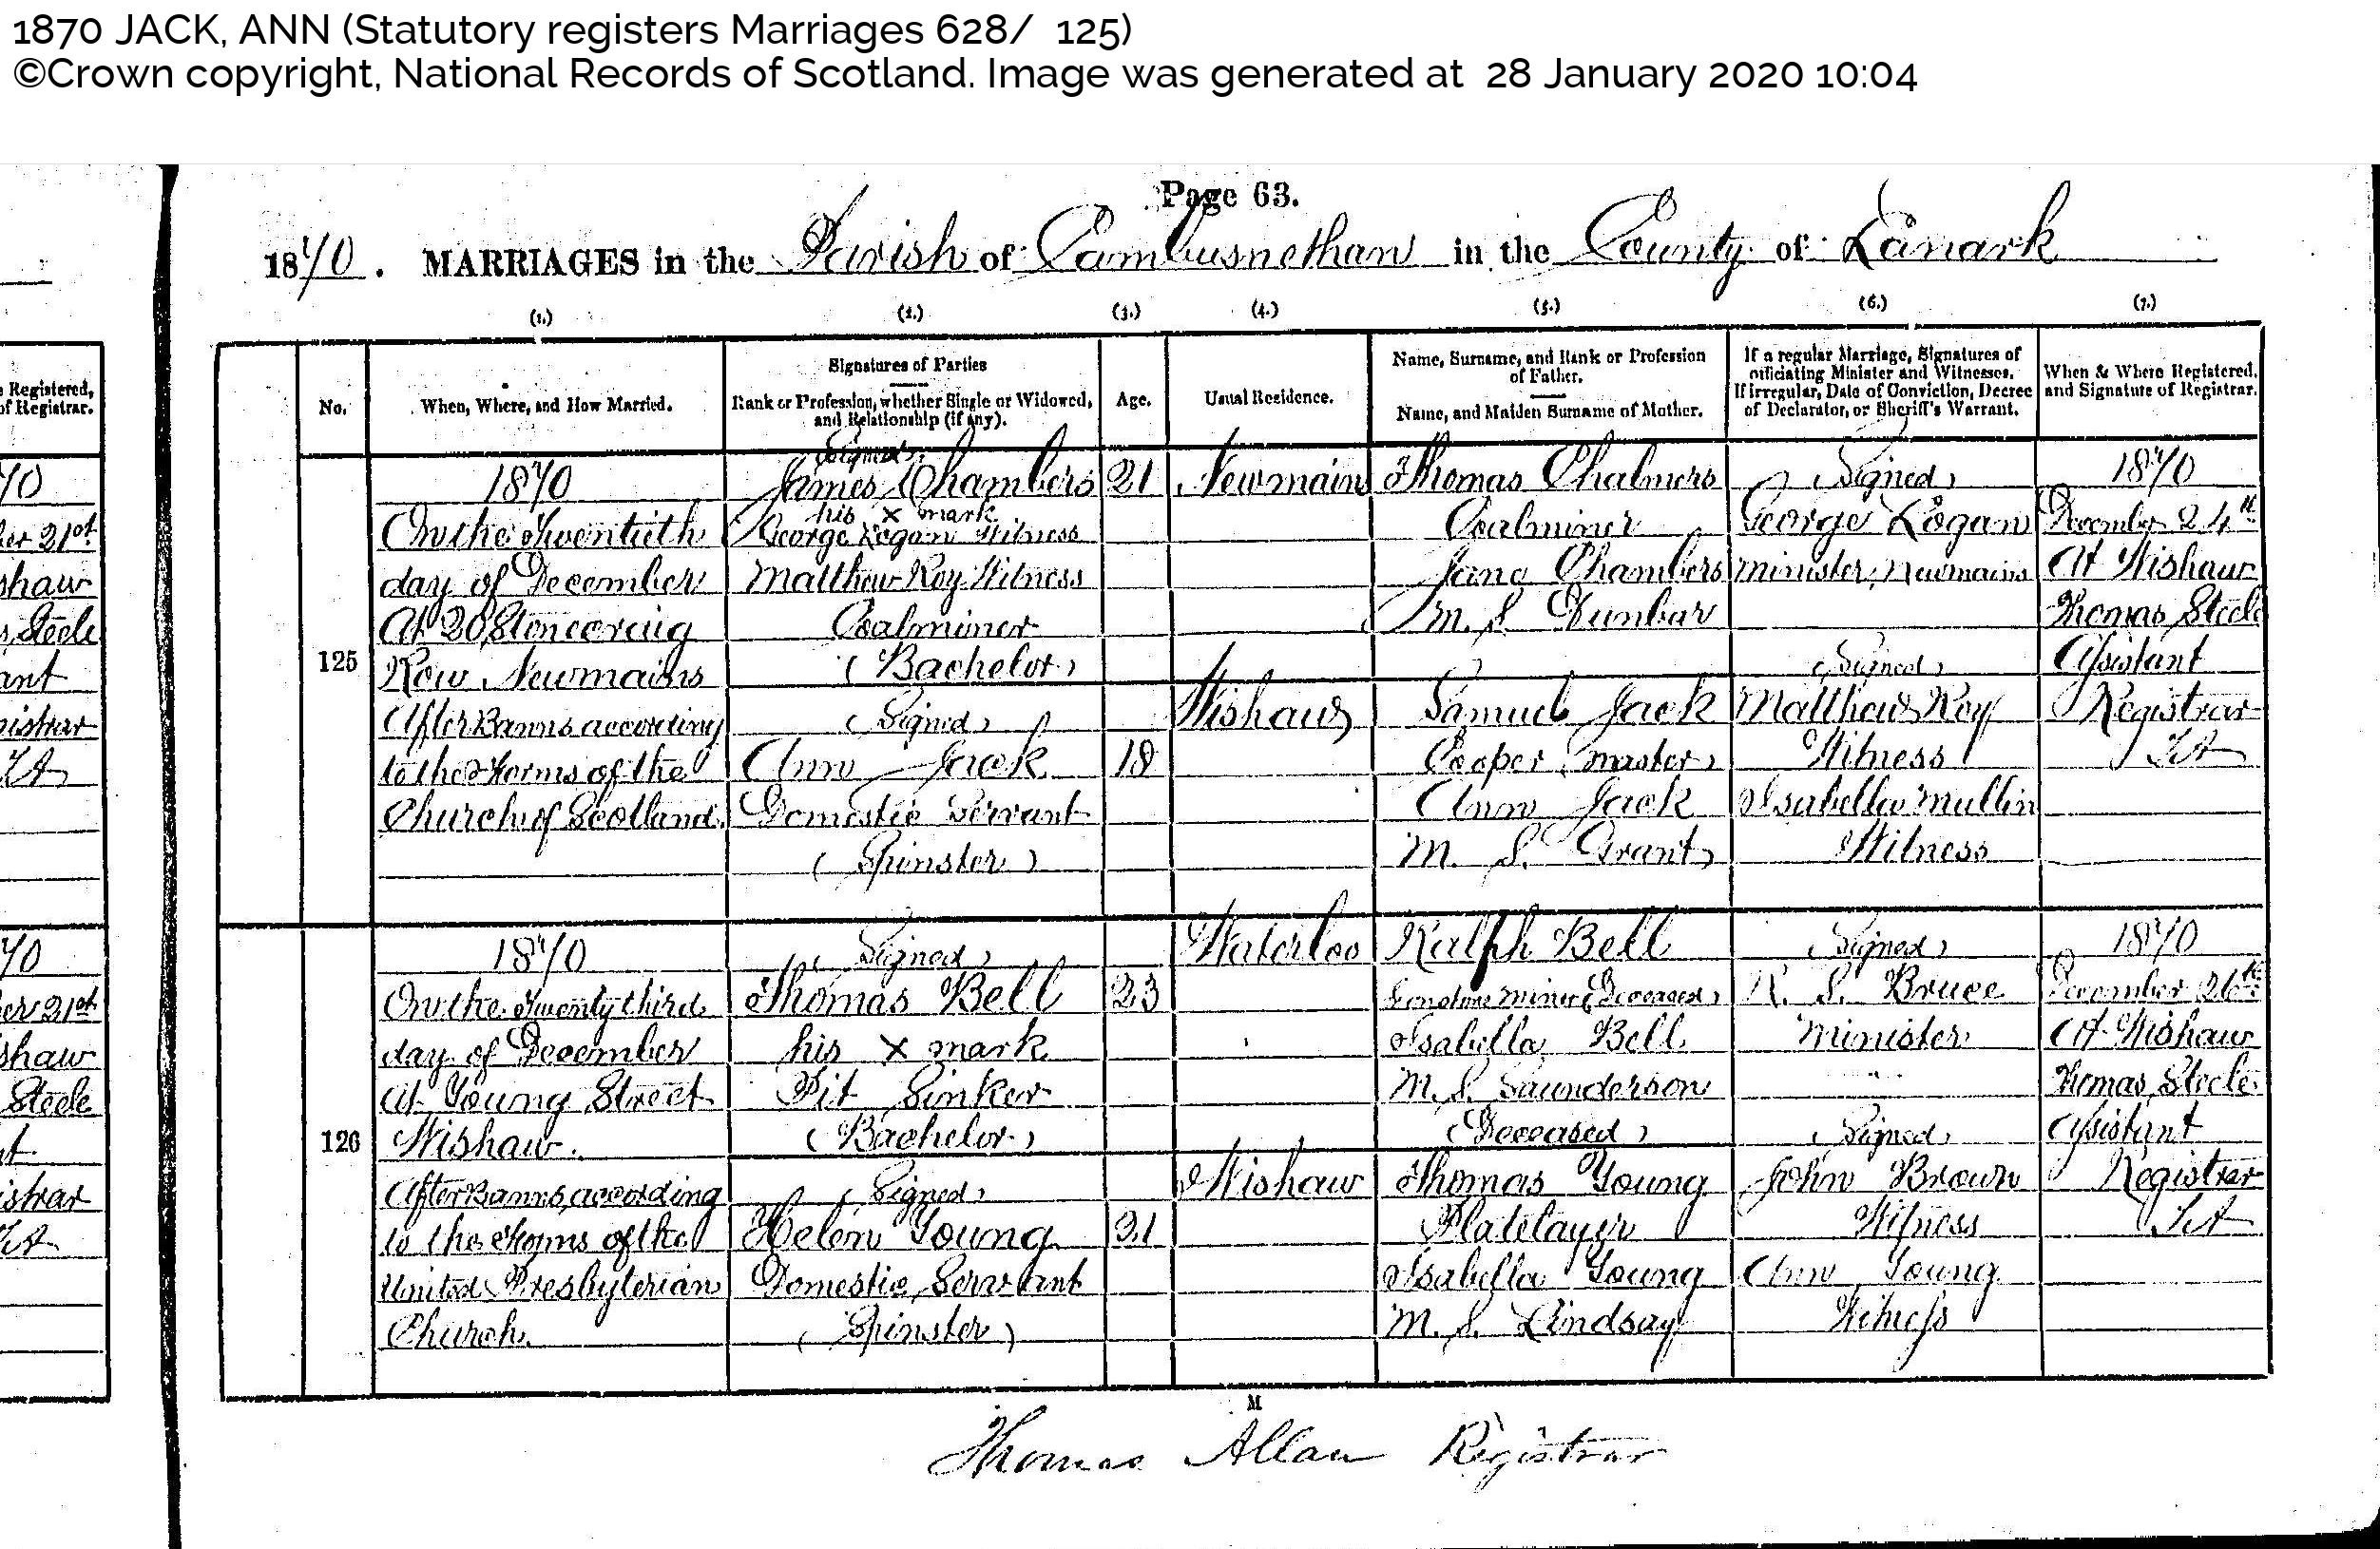 1870 JACK, ANN (Statutory registers Marriages 628/ 125)
©Crown copyright, National Records of Scotland. Image was generated at 28 January 2020 10:04
Page 63.
1870. MARRIAGES in the Parish of Cambusnethan in the County of Lanark
(1.) (2.) (3.) (4.) (5.) (6.) (7.)
e Registered,
of Registrar.
No.
When, Where, and How Married.
Signatures of Parties
Rank or Profession, whether Single or Widowed,
and Relationship (if any).
Age.
Usual Residence.
Name, Surname, and Rank or Profession
of Father.
Name, and Maiden Surname of Mother.
If a regular Marriage, Signatures of
officiating Minister and Witnesses.
If irregular, Date of Conviction, Decree
of Declarator, or Sheriff's Warrant.
When & Where Registered,
and Signature of Registrar.
70
ber 21st
shaw
s Steele
ant
gistrar
TA
125
1870
On the Twentieth
day of December
At 20 Stonecraig
Row Newmains
After Banns according
to the Forms of the
Church of Scotland.
Signed
James Chambers
his x mark
George Logan Witness
Matthew Roy Witness
Coalminer
(Bachelor)
(Signed)
Ann Jack
Domestic Servant
(Spinster)
21
18
Newmains
Wishaw
Thomas Chalmers
Coalminer
Jane Chambers
M.S. Dunbar
Samuel Jack
Cooper (master)
Ann Jack
M. S. Grant
(Signed)
George Logan
Minister, Newmains
(Signed)
Matthew Roy
Witness
Isabella Mullin
Witness
1870
December 24th
At Wishaw
Thomas Steele
Assistant
Registrar
TA
70
ber 21st
shaw
Steele
t
istrar
TA
126
1870
On the Twenty third
day of December
At Young Street
Wishaw.
After Banns, according
to the Forms of the
United Presbyterian
Church.
(Signed)
Thomas Bell
his x mark
Pit Sinker
(Bachelor)
(Signed)
Helen Young
Domestic Servant
(Spinster)
23
21
Waterloo
Wishaw
Ralph Bell
Miner (Deceased)
Isabella Bell
M.S. Saunderson
(Deceased)
Thomas Young
Platelayer
Isabella Young
M.S. Lindsay
(Signed)
R. S. Bruce
Minister
(Signed)
John Brown
Witness
Ann Young
Witness
1870
December 26th
At Wishaw
Thomas Steele
Assistant
Registrar
TA
M
Thomas Allan Registrar